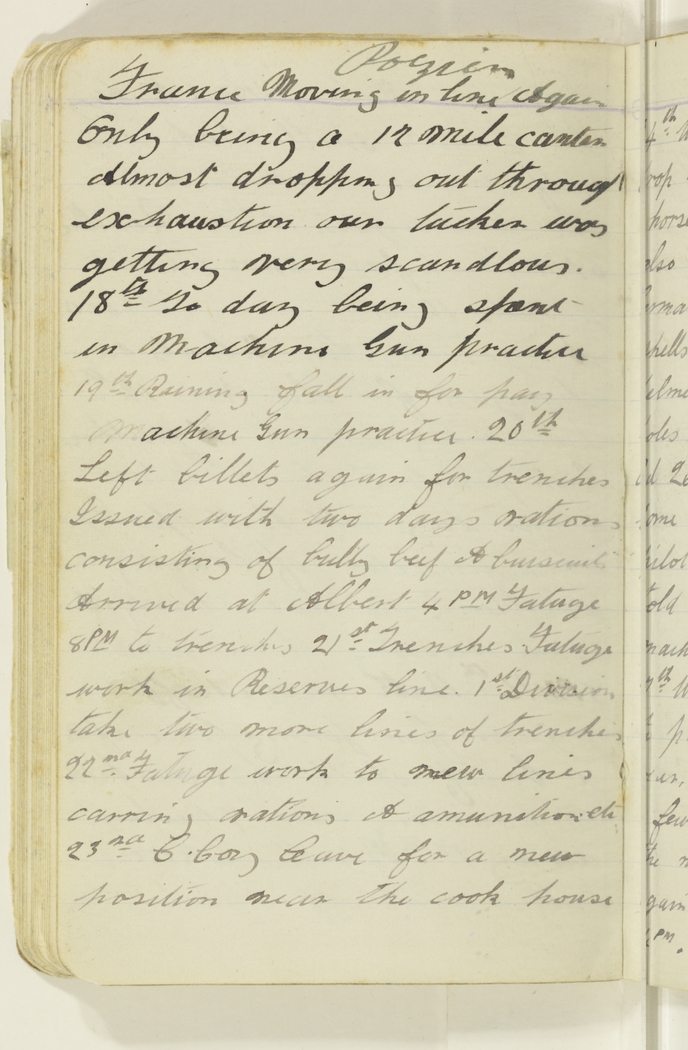 Pozieres
France Moving in line Again
Only being a 12 mile canter
Almost dropping out through
exhaustion our tucker was
getting very scandlous.
18th To day being spent
in Machine Gun practice
19th Raining fall in for pay
Machine Gun practice. 20th
Left billets again for trenches
Issued with two days rations
consisting of bully beef & buiscuits
Arrived at Albert 4 PM Fatuge
8PM to trenches 21st Trenches Fatuge
work in Reserves line. 1st Division
take two more lines of trenches
22nd Fatuge work to new lines
carring rations & amunition etc
23rd C. Coy leave for a new
position near the cook house
4th
horse
also
told
few
gain
PM.